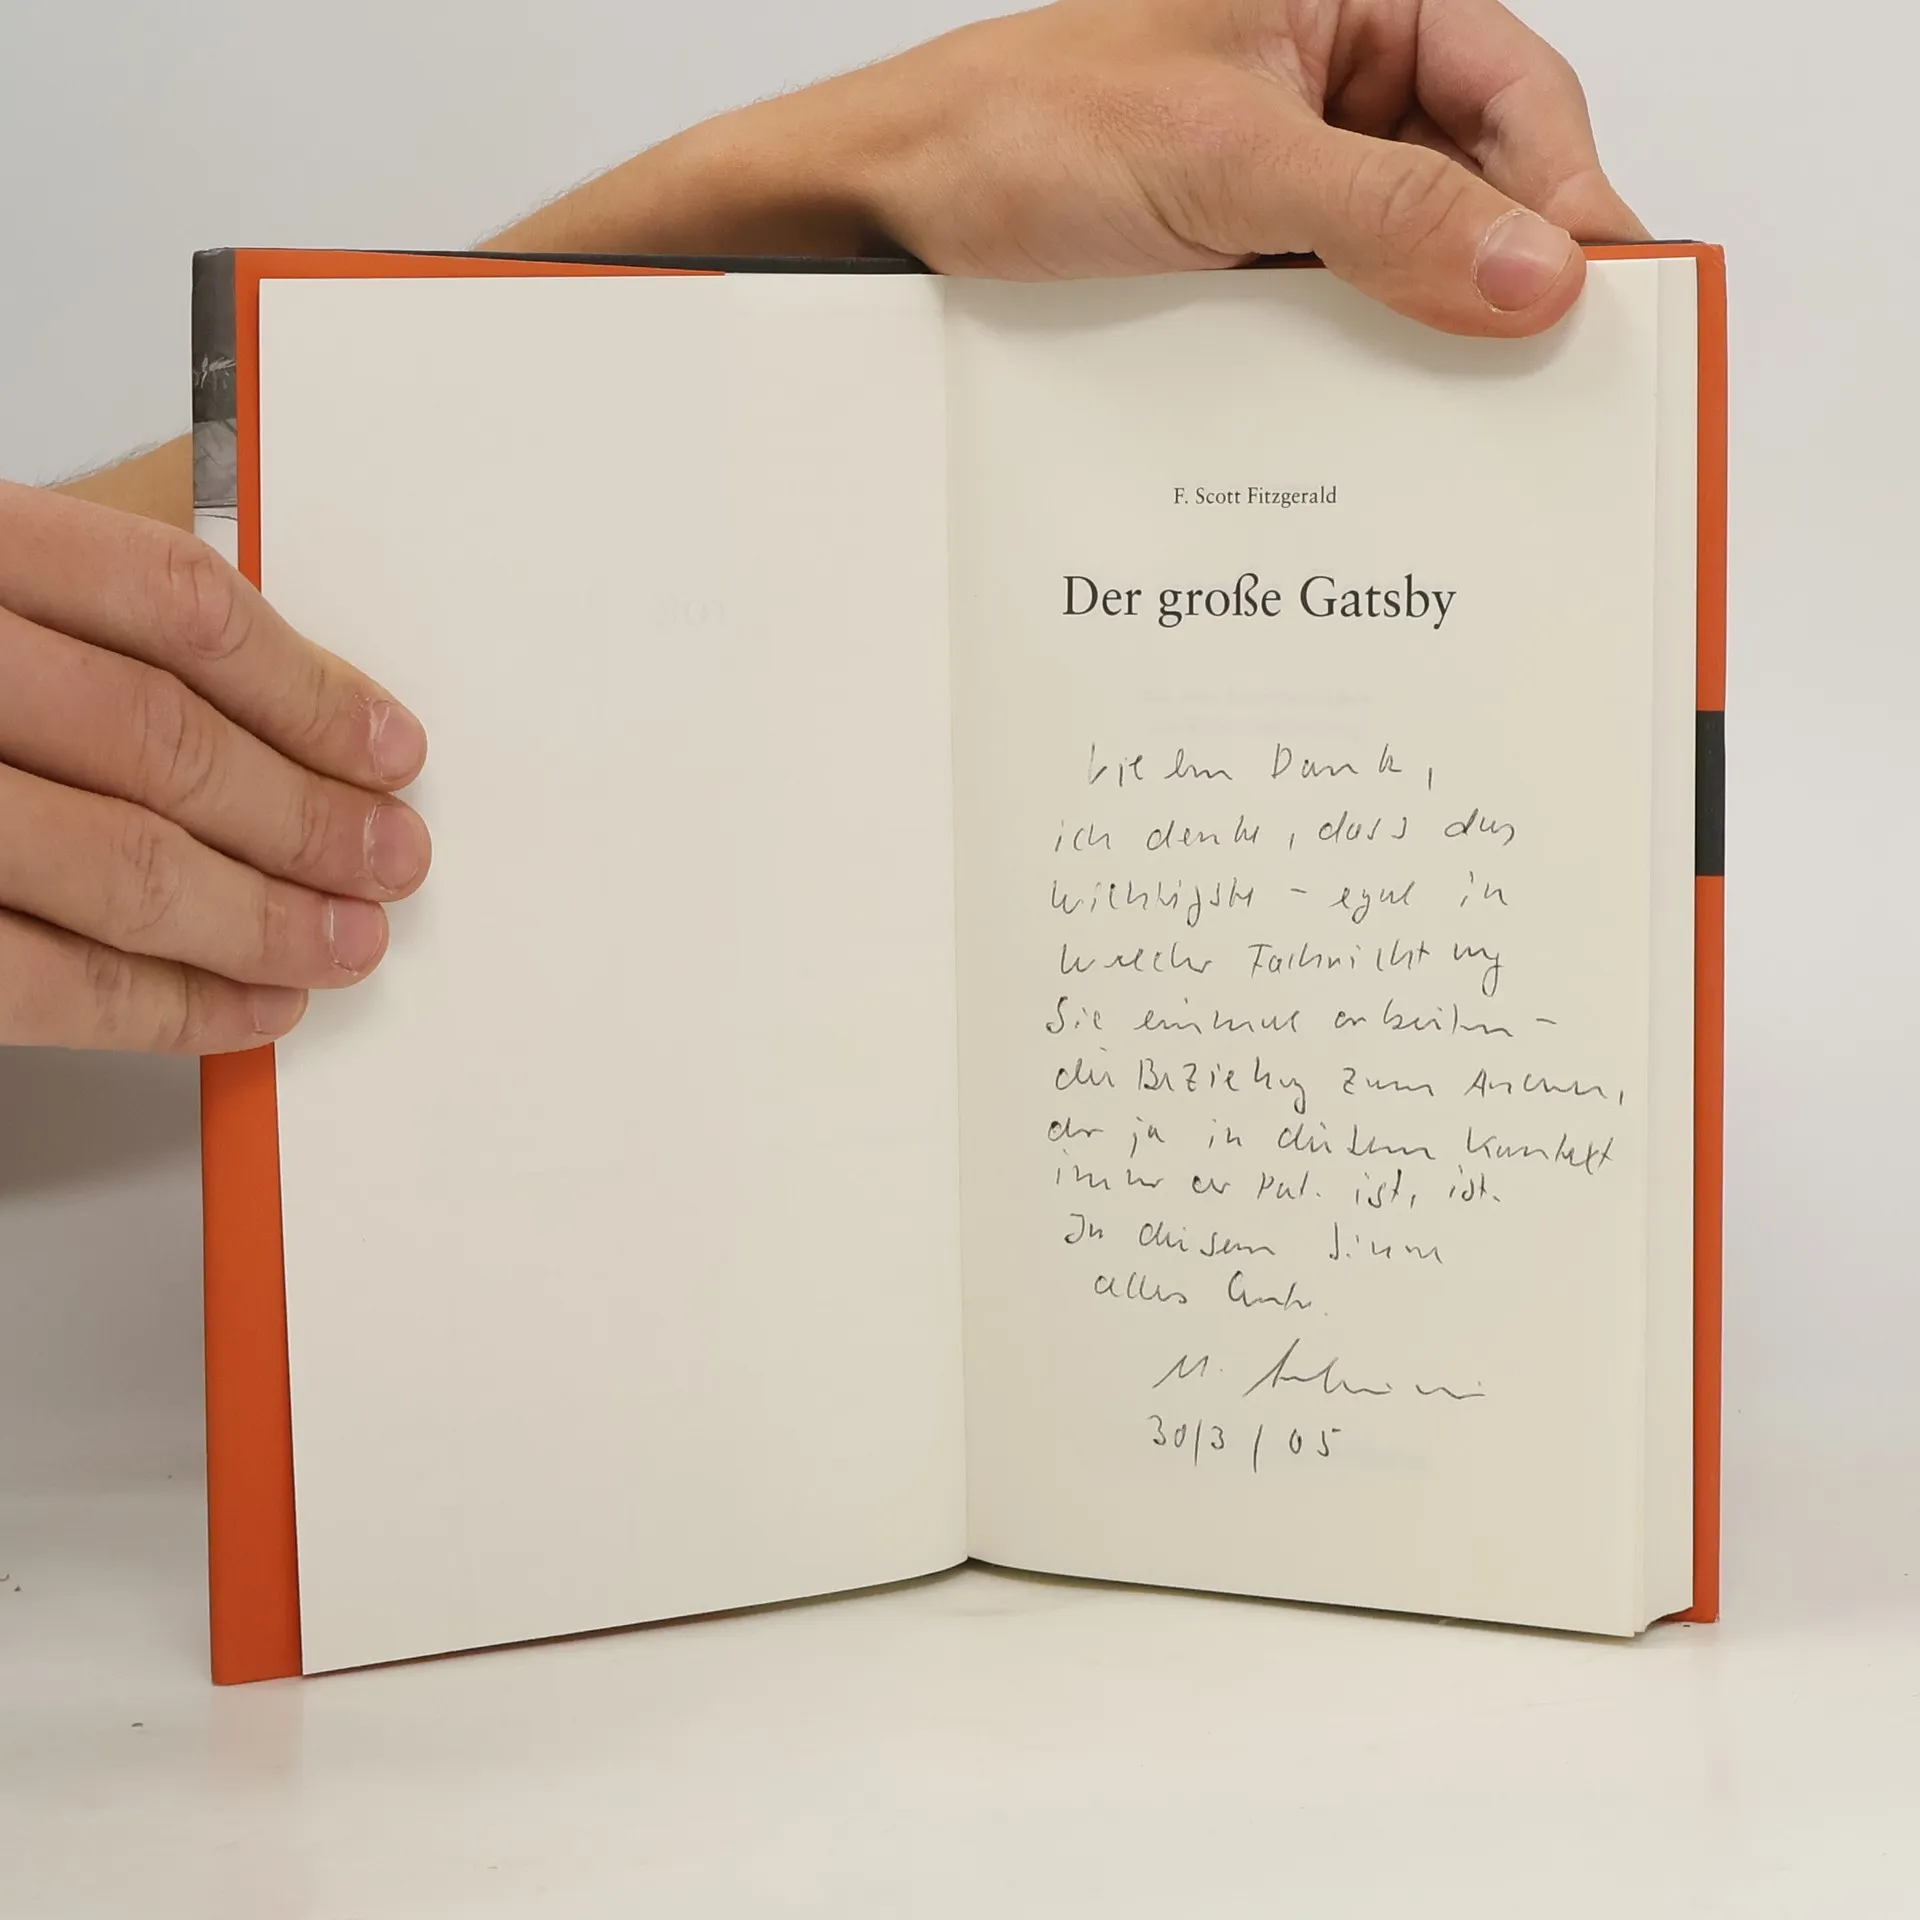 F. Scott Fitzgerald
Der große Gatsby
Vielen Dank,
ich denke, dass das
wichtigste – egal in
welcher Fachrichtung
Sie einmal arbeiten –
die Beziehung zum Anderen,
der ja in diesem Kontext
immer der Pat. ist, ist.
In diesem Sinne
alles Gute.
M.
30/3/05